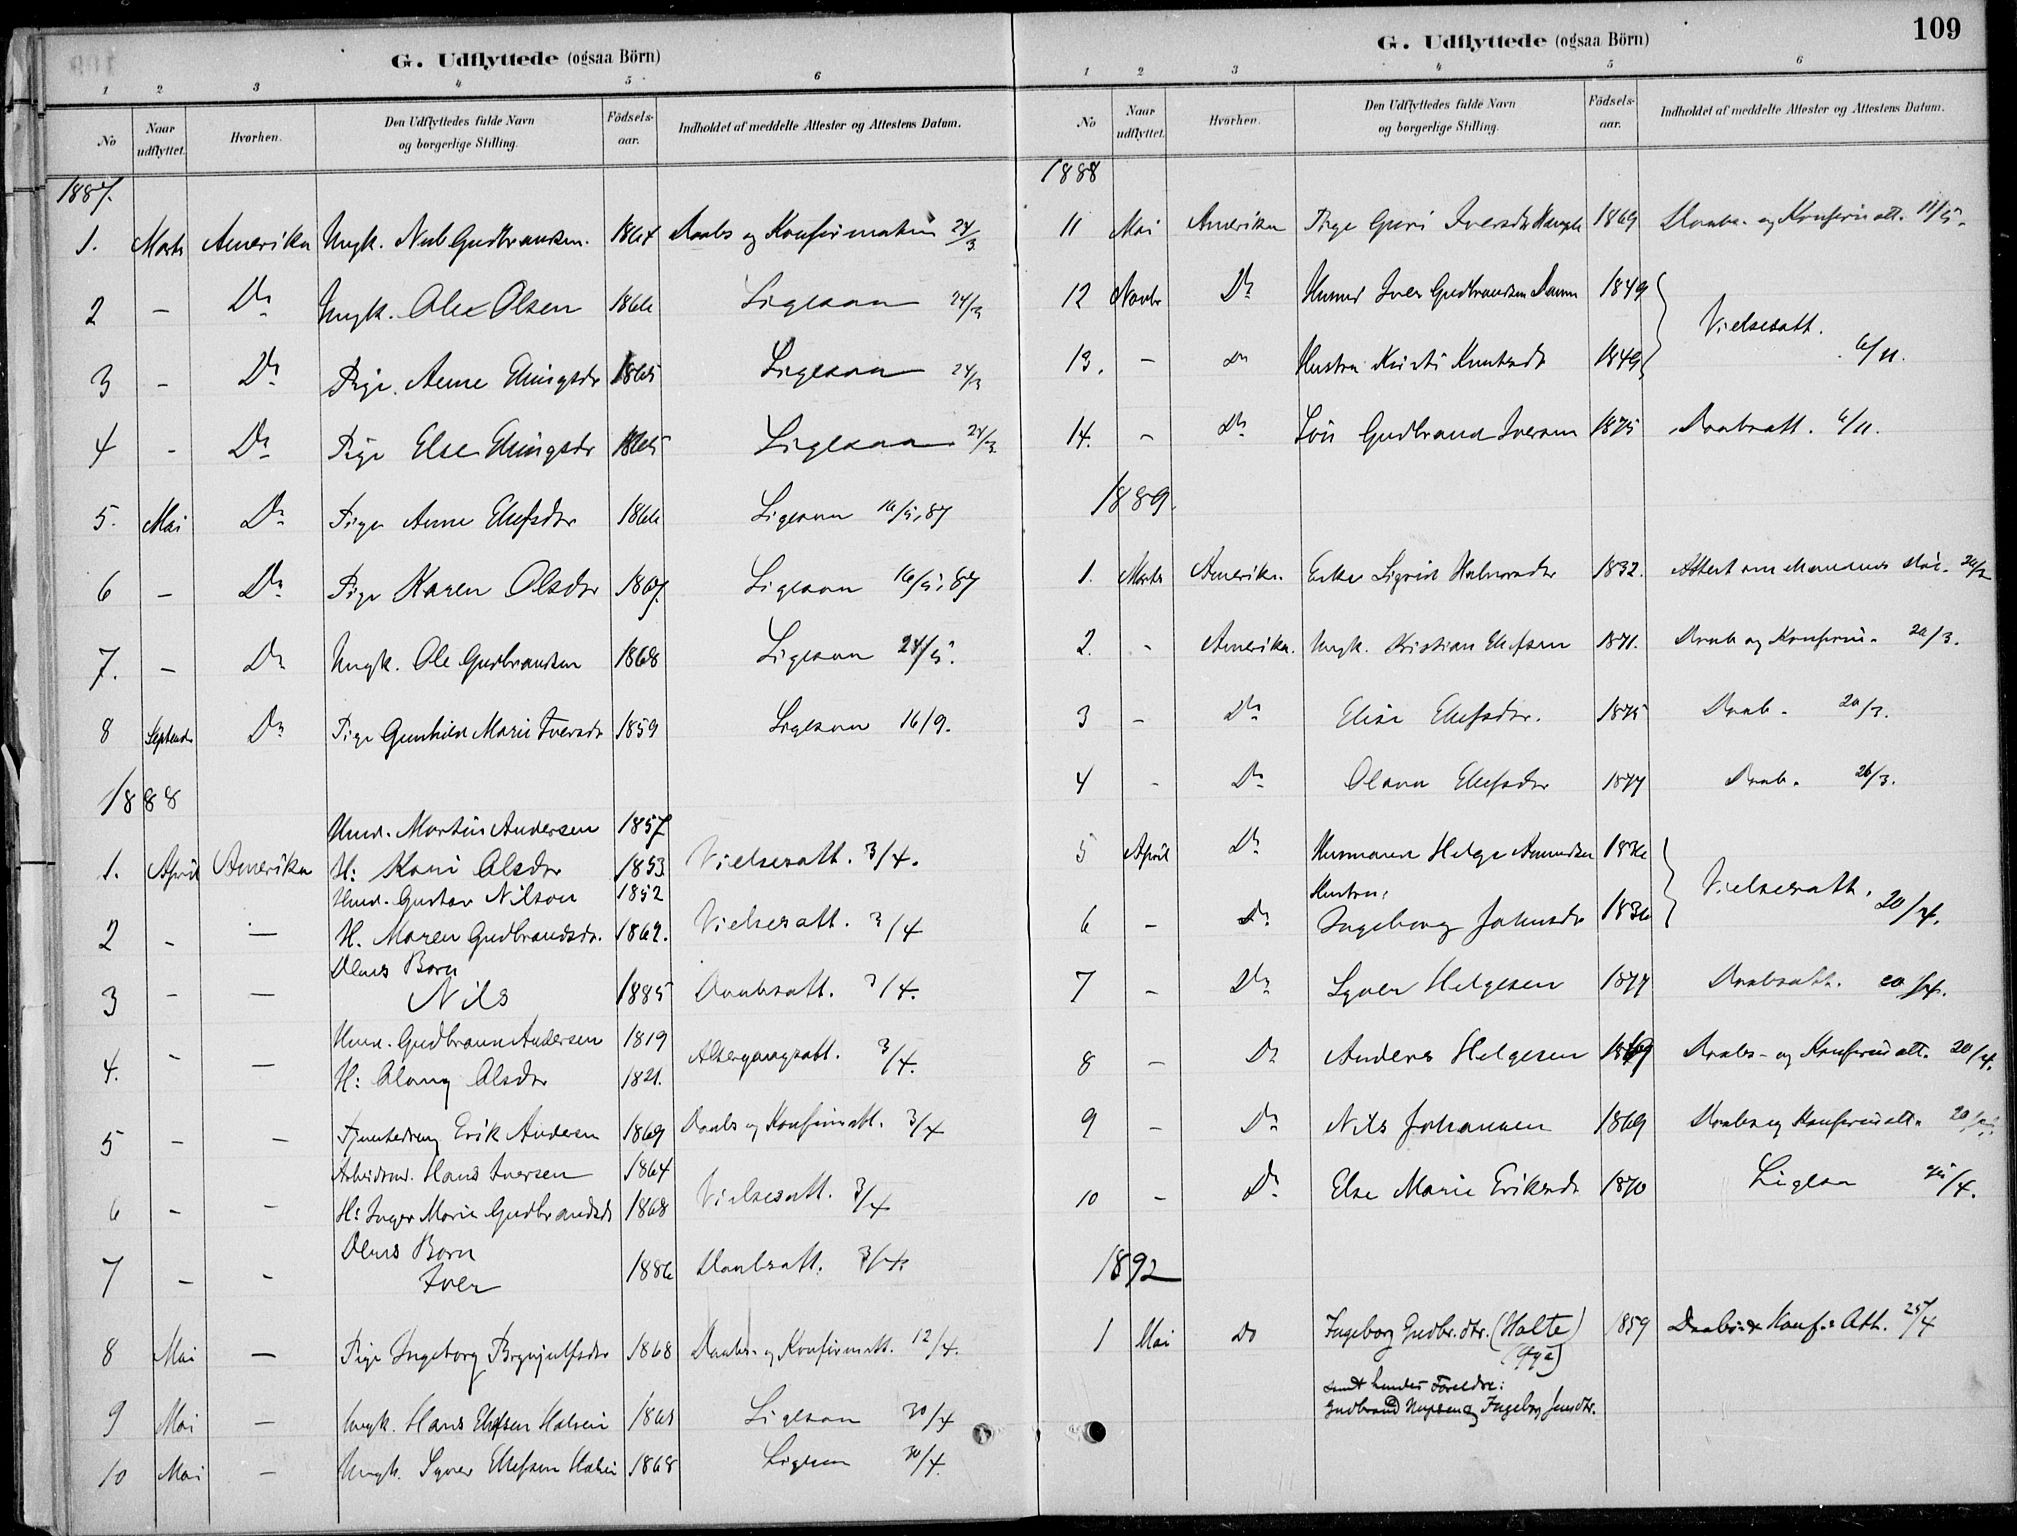 G. Udflyttede (ogsaa Börn)
1 2 3 4 5 6
No Naar udflyttet. Hvorhen. Den Udflyttedes fulde Navn og borgerlige Stilling. Födsels-aar. Indholdet af meddelte Attester og Attestens Datum.
1887.
1. Marts Amerika Ungk. Gudbrandsen. 1864 Daabs og Konfirmation 24/3
2 - Do Ungk. Ole Olsen 1866 Ligesaa 24/3
3 - Do Pige. Anne Ellingsdr 1865 Ligesaa 24/3
4 - Do Pige Else Ellingsdr 1865 Ligesaa 24/3
5. Mai Do Pige Anne Ellefsdr 1866 Ligesaa 16/5, 87
6 - Do Pige Karen Olsdr 1867. Ligesaa 16/5, 87
7. - Do Ungk. Ole Gudbrandsen 1868 Ligesaa 24/5.
8 Septembr Do Pige Gunhild Marie Iversdr 1859 Ligesaa 16/9.
1888
Husmd. Martin Andersen 1857
1. April Amerika H: Kari Olsdr 1853 Vielsesatt. 3/4.
Husmd. Gustav Nilson 1852
2 - — H. Maren Gudbrandsdr. 1862. Vielsesatt. 3/4
Deres Barn
3 - — Nils 1885 Daabsatt. 3/4.
Husmd. Gudbrand Andersen 1819
4. - — H: Olsdr 1821. Altergangsatt. 3/4.
5 - - Tjenstedreng Erik Andersen 1869 Daabs og Konfirmatt. 3/4
Arbeidsmd. Hans Iversen 1864
6 - - H: Inger Marie Gudbrandsdr 1868 Vielsesatt. 3/4
Deres Barn
7 - - Iver 1886 Daabsatt. 3/4.
8 Mai — Pige Ingeborg Brynjulfsdr 1868 Daabs- og Konfirmatt. 12/4.
9 Mai — Ungk. Hans Ellefsen 1865 Ligesaa 30/4
10 Mai — Ungk. Syver Ellefsen 1868 Ligesaa 30/4.
109
G. Udflyttede (ogsaa Börn)
1 2 3 4 5 6
No Naar udflyttet. Hvorhen. Den Udflyttedes fulde Navn og borgerlige Stilling. Födsels-aar. Indholdet af meddelte Attester og Attestens Datum.
1888
11 Mai Amerika Pige Guri Iversdr 1869 Daabs- og Konfirmatt. 11/5.
12 Novbr Do Husmd Iver Gudbrandsen 1849
Vielsesatt.
13. - Do Hustru Kristi Knutsdr 1849 6/11.
14. - Do Sön Gudbrand Iversen 1875 Daabsatt. 6/11.
1889.
1. Marts Amerika. Enke Sigrid Halvorsdr 1832. Attest om Mandens
2. - Amerika. Ungk. Kristian Ellefsen 1871. Daab og Konfirm. 20/3.
3 - Do Elise Ellefsdr. 1875 Daab. 20/3.
4 - Do Olava Ellefsdr 1877 Daab. 26/3.
5 April Do Husmand Helge Amundsen 1836
Hustru: Vielsesatt.
6 - Do Ingeborg Johnsdr 1836 20/4.
7 - Do Syver Helgesen 1877 Daabsatt. 20/4.
8 - Do Anders Helgesen 1869 Daabs- og Konfirmatt. 20/4.
9 - Do Nils Johannsen 1869 Daabs og Konfirmatt.
10 - Do Else Marie Eriksdr 1870 Ligesaa
1892
1 Mai Do Ingeborg Gudbr. dtr. (Holte) 1859 Daabs- & Konf.- Att. 25/4
samt hendes Foreldre:
Gudbrand og Ingeborg